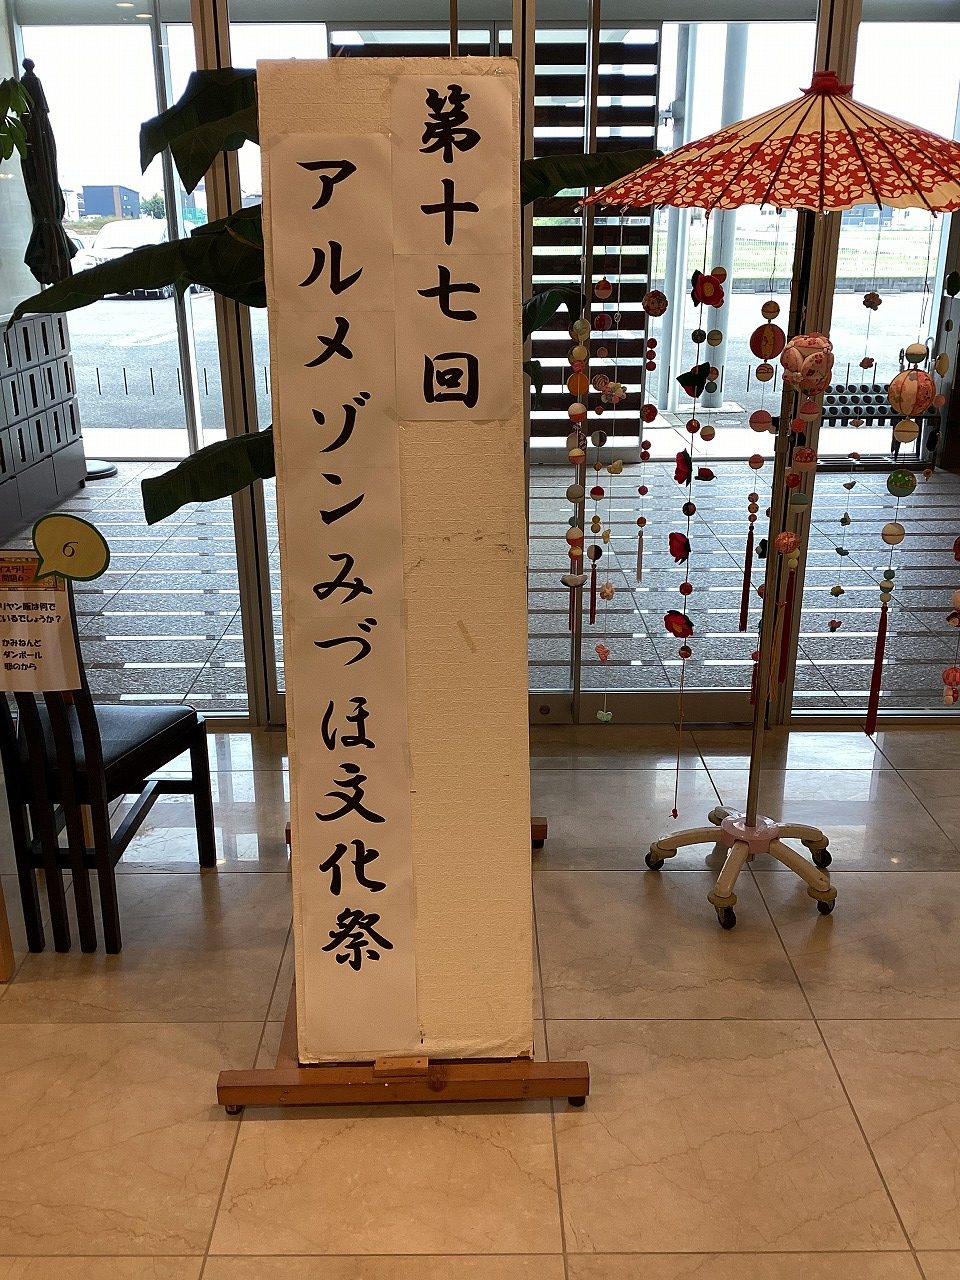 第十七回
アルメゾンみづほ文化祭
6
問題6
リヤン畈は何で
いるでしょうか?
かみねんど
ダンボール
卵のから